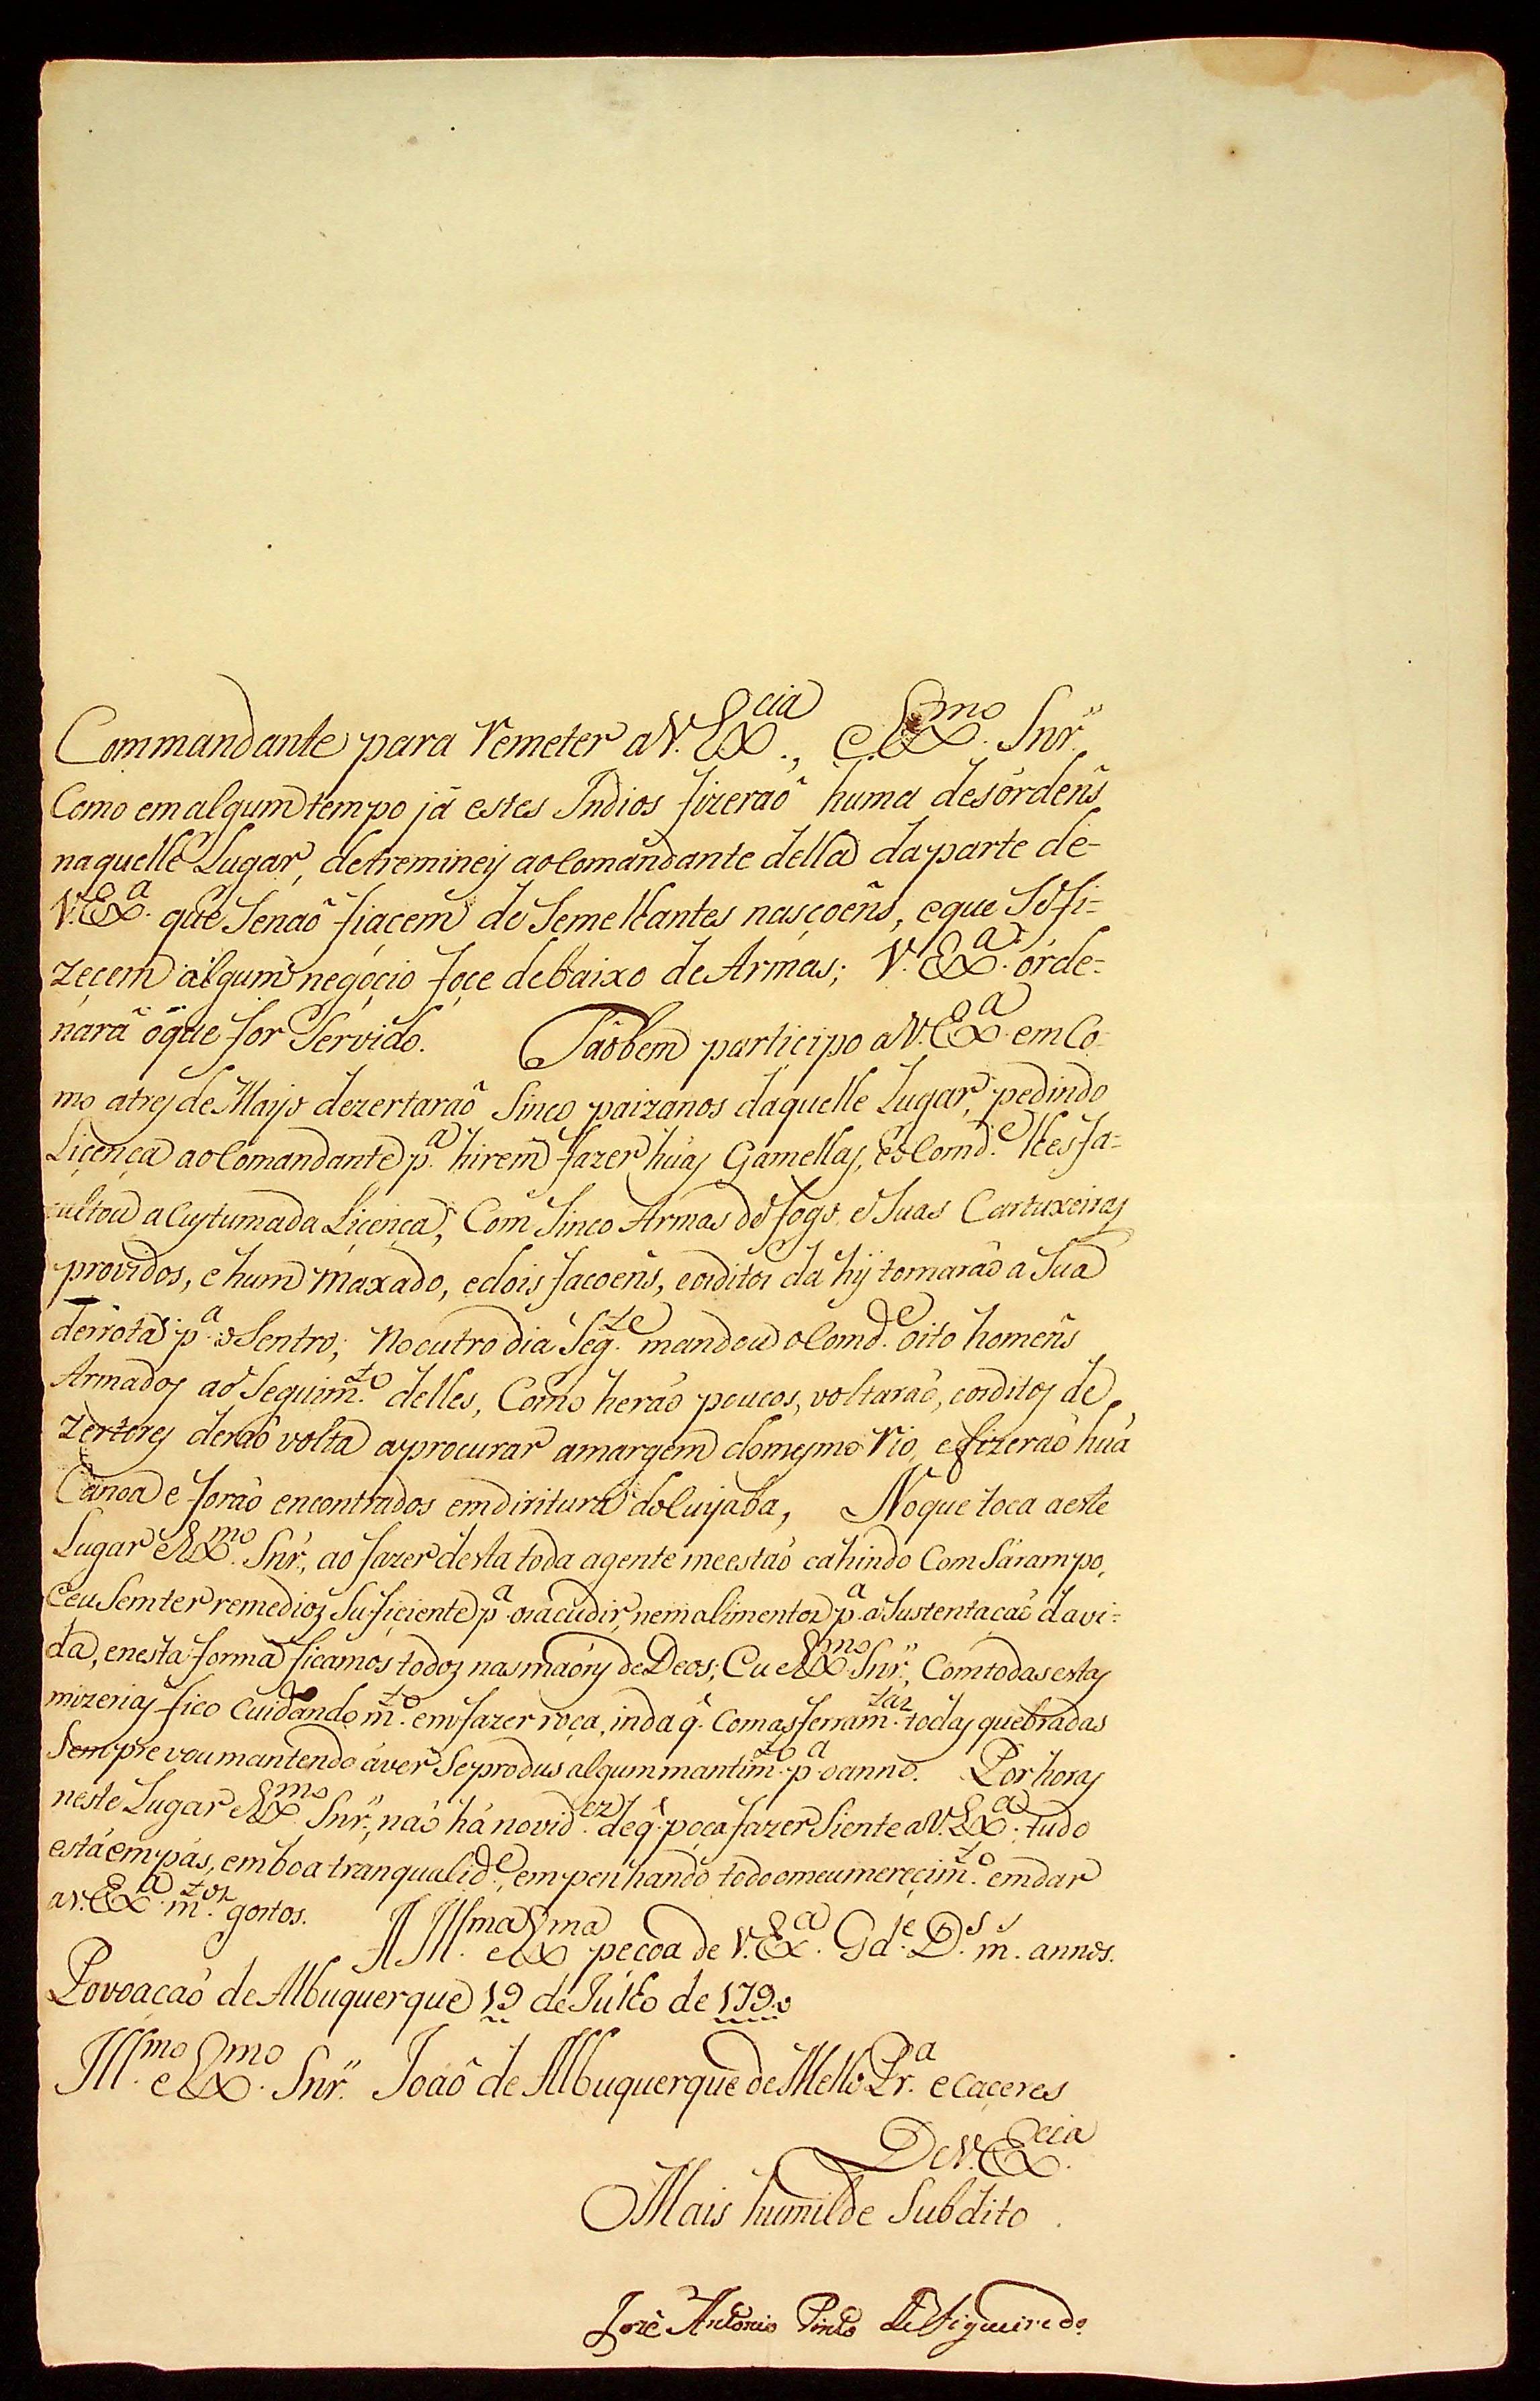 Commandante para Remeter a V. Ex.cia, e Ex.mo Snr.
Como em algum tempo já estes Indios fizeraõ huma desórdens
naquelle Lugar, detreminey ao Comandante della da parte de-
V. Ex.a que Senaõ fiaçem de Semelhantes nasçoens, e que Se fi=
zeçem algum negócio foçe debaixo de Armas; V. Ex.a órde=
nará óque for Servido. Taõbem participo a V. Ex.a em Co-
mo atrez de Mayo dezertaraõ Sinco paizanos daquelle Lugar, pedindo
Liçença ao Comandante p.a hirem fazer huãs Gamellas, e o Comd.e lhes fa=
cultou a Custumada Liçença, Com Sinco Armas de fogo, e Suas Cartuxeiras
providos, e hum Maxado, e dois facoens, e os ditos da hy tomaraõ a Sua
derrota p.a o Sentro; no outro dia Seg.te mandou o Comd.e oito homens
Armados ao Seguim.to delles, Como heraõ poucos, voltaraõ, e os ditos de
zertores deraõ volta a procurar a margem do mesmo Rio, e fizeraõ huã
Canoa e foraõ encontrados em diritura do Cuyaba, No que toca a este
Lugar Ex.mo Snr., ao fazer desta toda agente me estaõ cahindo Com Sarampo,
e eu Sem ter remedios Sufiçiente p.a os acudir, nem alimentos p.a a Sustentaçaõ da vi=
da, e nesta forma ficamos todos nas maõns de Deos; Eu Ex.mo Snr., Com todas estas
mizerias fico Cuidando m.to em fazer roça, inda q. Com as ferram.tas todas quebradas
Sempre vou mantendo áver Se produs algum mantim.to p.a o anno. Por horas
neste Lugar Ex.mo Snr., naõ há novid.ez de q. poça fazer Siente a V. Ex.a tudo
está em pás, em boa tranqualid.e, empenhando todo o meu mereçim.to em dar
a V. Ex.a m.tos gostos. A Ill.ma e Ex.ma peçoa de V. Ex.a G.de D.s m.s annos.
Povoaçaõ de Albuquerque 19 de Julho de 1790
Ill.mo e Ex.mo Snr. Joaõ de Albuquerque de Mello Pr.a e Caçeres
De V. Ex.cia
Mais humilde Subdito
Jozé Antonio Pinto de Figueiredo